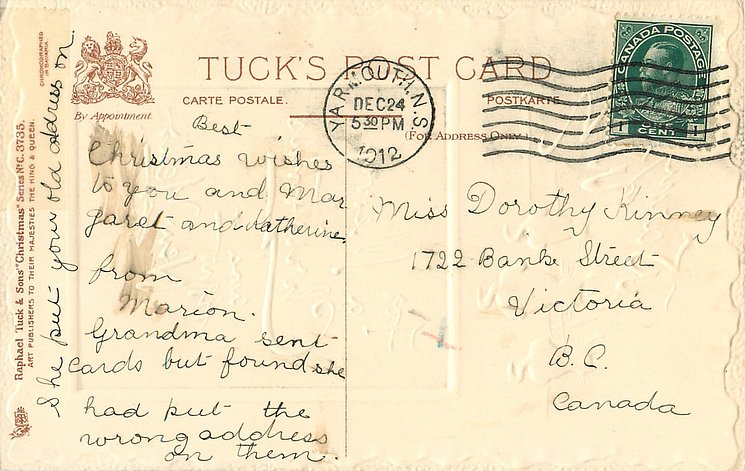 CHROMOGRAPHED
IN BAVARIA
Raphael Tuck & Sons' "Christmas" Series Nº C. 3735.
ART PUBLISHERS TO THEIR MAJESTIES THE KING & QUEEN.
By Appointment.
TUCK'S POST CARD
CARTE POSTALE.
POSTKARTE
(FOR ADDRESS ONLY.)
YARMOUTH, N.S.
DEC 24
5 30 PM
1912
CANADA POSTAGE
1 1
CENT
Best
Christmas wishes
to you and Mar
garet and Katherine,
from
Marion.
Grandma sent
cards but found she
had put the
wrong address
on them.
She put your old address on
Miss Dorothy Kinney
1722 Banke Street
Victoria
B.C.
Canada